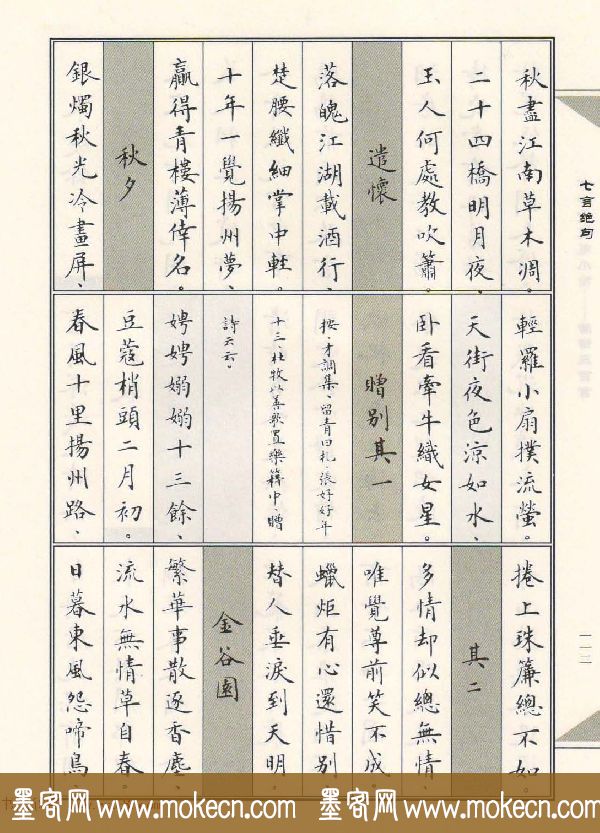 七言絕句
一一二
秋盡江南草木凋。
二十四橋明月夜、
玉人何處教吹簫。
遣懷
落魄江湖載酒行、
楚腰纖細掌中輕。
十年一覺揚州夢、
贏得青樓薄倖名。
秋夕
銀燭秋光冷畫屏、
輕羅小扇撲流螢。
天街夜色涼如水、
卧看牽牛織女星。
贈别其一
按、才調集、留青日札、張好好年
十三、杜牧以善歌置樂籍中、贈
詩云云。
娉娉嫋嫋十三餘、
豆蔻梢頭二月初。
春風十里揚州路、
捲上珠簾總不如。
其二
多情却似總無情、
唯覺尊前笑不成。
蠟炬有心還惜别
替人垂淚到天明。
金谷園
繁華事散逐香塵、
流水無情草自春。
日暮東風怨啼鳥、
墨客网 www.mokecn.com 墨客网 www.mokecn.com